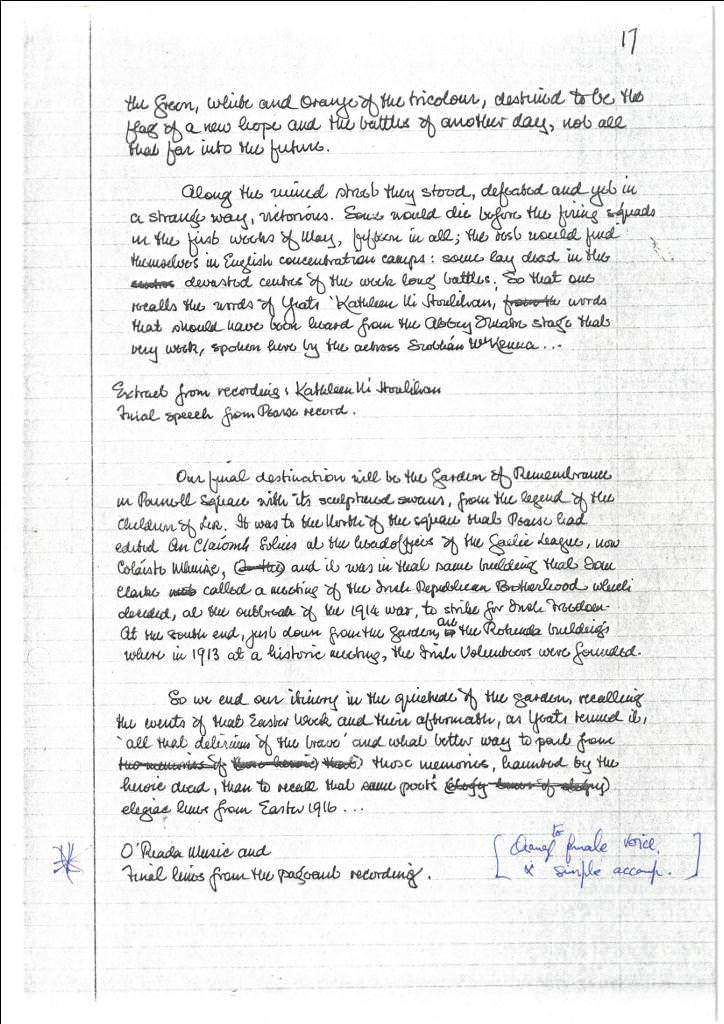 17
the Green, White and Orange of the tricolour, destined to be the
flag of a new hope and the battles of another day, not all
that far into the future.
Along the ruined street they stood, defeated and yet in
a strange way, victorious. Some would die before the firing squads
in the first weeks of May, fifteen in all; the rest would find
themselves in English concentration camps: some lay dead in the
devasted centres of the week long battles; So that one
recalls the words of Yeats 'Kathleen Ni Houlihan, words
that should have been heard from the Abbey Theatre stage that
very week, spoken here by the actress Siobhán McKenna...
Extract from recording: Kathleen Ni Houlihan
Final speech from Pearse record.
Our final destination will be the Garden of Remembrance
in Parnell Square with its sculptured swans, from the legend of the
Children of Lir. It was to the North of the square that Pearse had
edited An Claiomh Solus at the head offices of the Gaelic League, now
Coláiste Mhuire, and it was in that same building that Tom
Clarke called a meeting of the Irish Republican Brotherhood which
decided, at the outbreak of the 1914 war, to strike for Irish Freedom.
At the south end, just down from the Garden, are the Rotunda buildings
where in 1913 at a historic meeting, the Irish Volunteers were founded.
So we end our itinery in the quietude of the garden, recalling
the events of that Easter Week and their aftermath, as Yeats termed it,
'all that delirium of the brave' and what better way to part from
the memories of those memories, haunted by the
heroic dead, than to recall that same poet's
elegiac lines from Easter 1916...
O'Reada Music and
Final lines from the pageant recording.
[ to female voice.
& simple accomp. ]